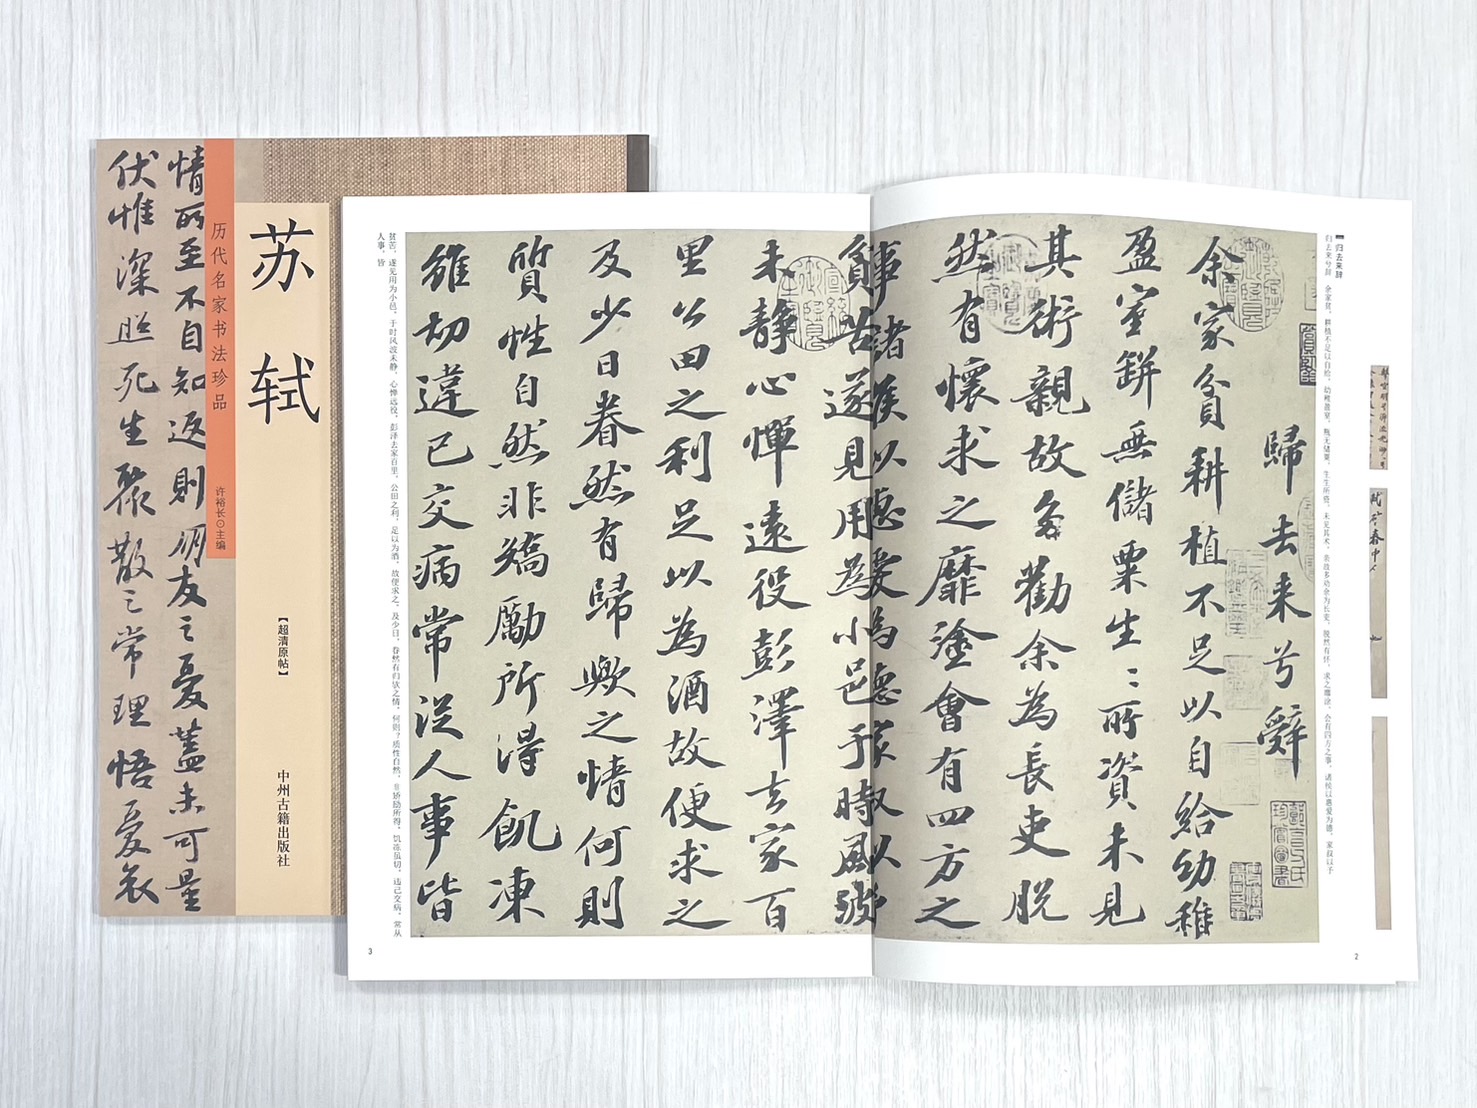 情所至不自知返則朋友之憂蓋未可量
伏惟深照死生聚散之常理悟憂哀
历代名家书法珍品
许裕长⊙主编
苏轼
【超清原帖】
中州古籍出版社
归去来辞
归去来兮辞 余家贫，耕植不足以自给，幼稚盈室，瓶无储粟，生生所资，未见其术，亲故多劝余为长吏，脱然有怀，求之靡途。会有四方之事，诸侯以惠爱为德，家叔以予
歸去来兮辭
余家貧耕植不足以自給幼稚
盈室缾無儲粟生生所資未見
其術親故多勸余為長吏脱
然有懷求之靡塗會有四方之
事諸侯以惠愛為德家叔以
貧苦遂見用為小邑于時風波
未静心憚遠役彭澤去家百
里公田之利足以為酒故便求之
及少日眷然有歸歟之情何則
質性自然非矯勵所得飢凍
雖切違已交病常從人事皆
贫苦，遂见用为小邑，于时风波未静，心惮远役，彭泽去家百里，公田之利，足以为酒，故便求之。及少日，眷然有归欤之情，何则？质性自然，非矫励所得，饥冻虽切，违己交病，常从
人事，皆
2
3